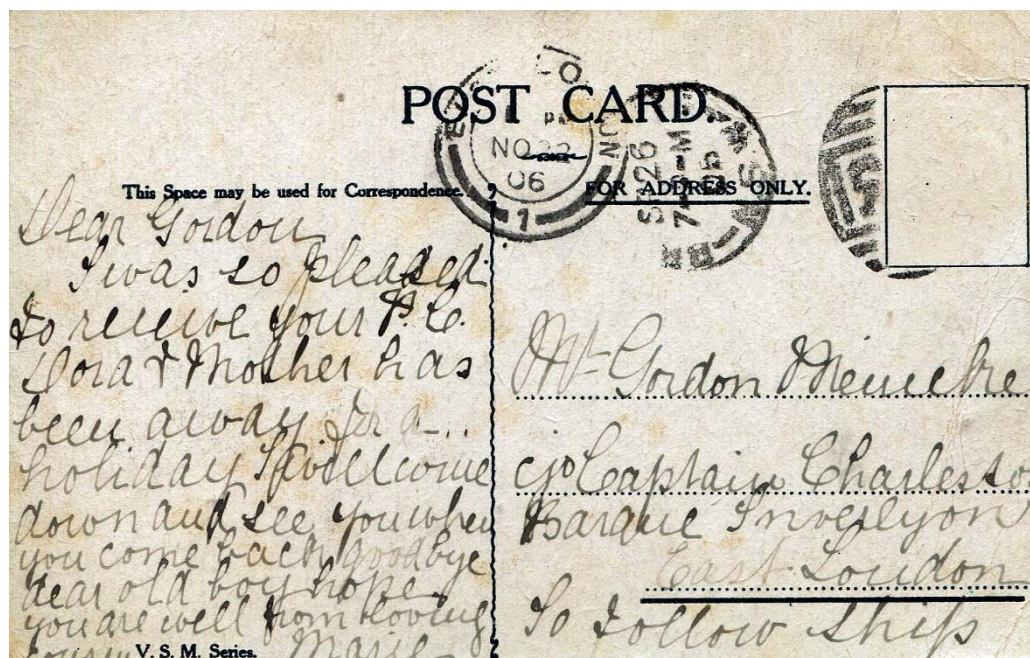 POST CARD.
NO 22
06
1
SP 26
7
This Space may be used for Correspondence.
FOR ADDRESS ONLY.
Dear Gordon
I was so pleased
to receive your P.C.
Dora & Mother has
been away for a
holiday I will come
down and see you when
you come back goodbye
dear old boy hope
you are well from loving
cousin Marie
V. S. M. Series.
Mr Gordon
c/o Captain Charleston
Barque Inverlyon
East London
To Follow Ship